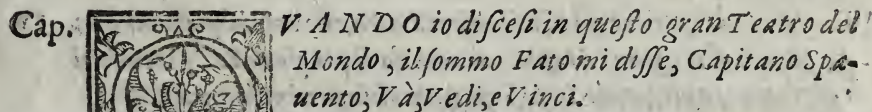 Cap. QVANDO io diſceſi in queſto gran Teatro del
Mondo, il ſommo Fato mi diſſe, Capitano Spa-
uento, Và, Vedi, e Vinci.